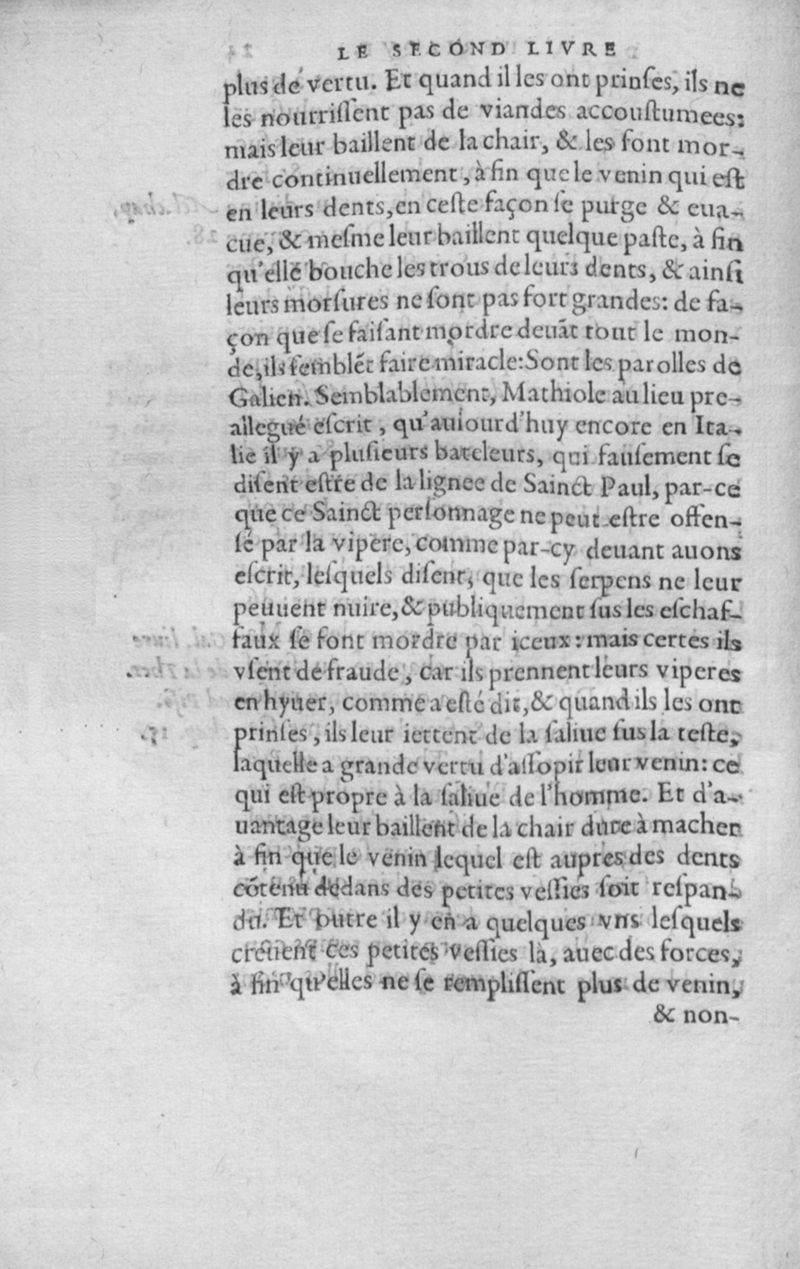 LE SECOND LIVRE
plus de vertu. Et quand il les ont prinſes, ils ne
les nourriſſent pas de viandes accouſtumees:
mais leur baillent de la chair, & les font mor-
dre continuellement, à fin que le venin qui eſt
en leurs dents, en ceſte façon ſe purge & eua-
cue, & meſme leur baillent quelque paſte, à fin
qu'elle bouche les trous de leurs dents, & ainſi
leurs morſures ne ſont pas fort grandes: de fa-
çon que ſe faiſant mordre deuāt tout le mon-
de, ils ſemblēt faire miracle: Sont les parolles de
Galien. Semblablement, Mathiole au lieu pre-
allegué eſcrit, qu'auiourd'huy encore en Ita-
lie il y a pluſieurs bateleurs, qui fauſement ſe
diſent eſtre de la lignee de Sainct Paul, par-ce
que ce Sainct perſonnage ne peut eſtre offen-
ſé par la vipere, comme par-cy deuant auons
eſcrit, leſquels diſent, que les ſerpens ne leur
peuuent nuire, & publiquement ſus les eſchaf-
faux ſe font mordre par iceux: mais certes ils
vſent de fraude, car ils prennent leurs viperes
en hyuer, comme a eſté dit, & quand ils les ont
prinſes, ils leur iettent de la ſaliue ſus la teſte,
laquelle a grande vertu d'aſſopir leur venin: ce
qui eſt propre à la ſaliue de l'homme. Et d'a-
uantage leur baillent de la chair dure à macher
à fin que le venin lequel eſt aupres des dents
cōtenu dedans des petites veſſies ſoit reſpan-
du. Et outre il y en a quelques vns leſquels
creuent ces petites veſſies là, auec des forces,
à fin qu'elles ne ſe rempliſſent plus de venin,
& non-